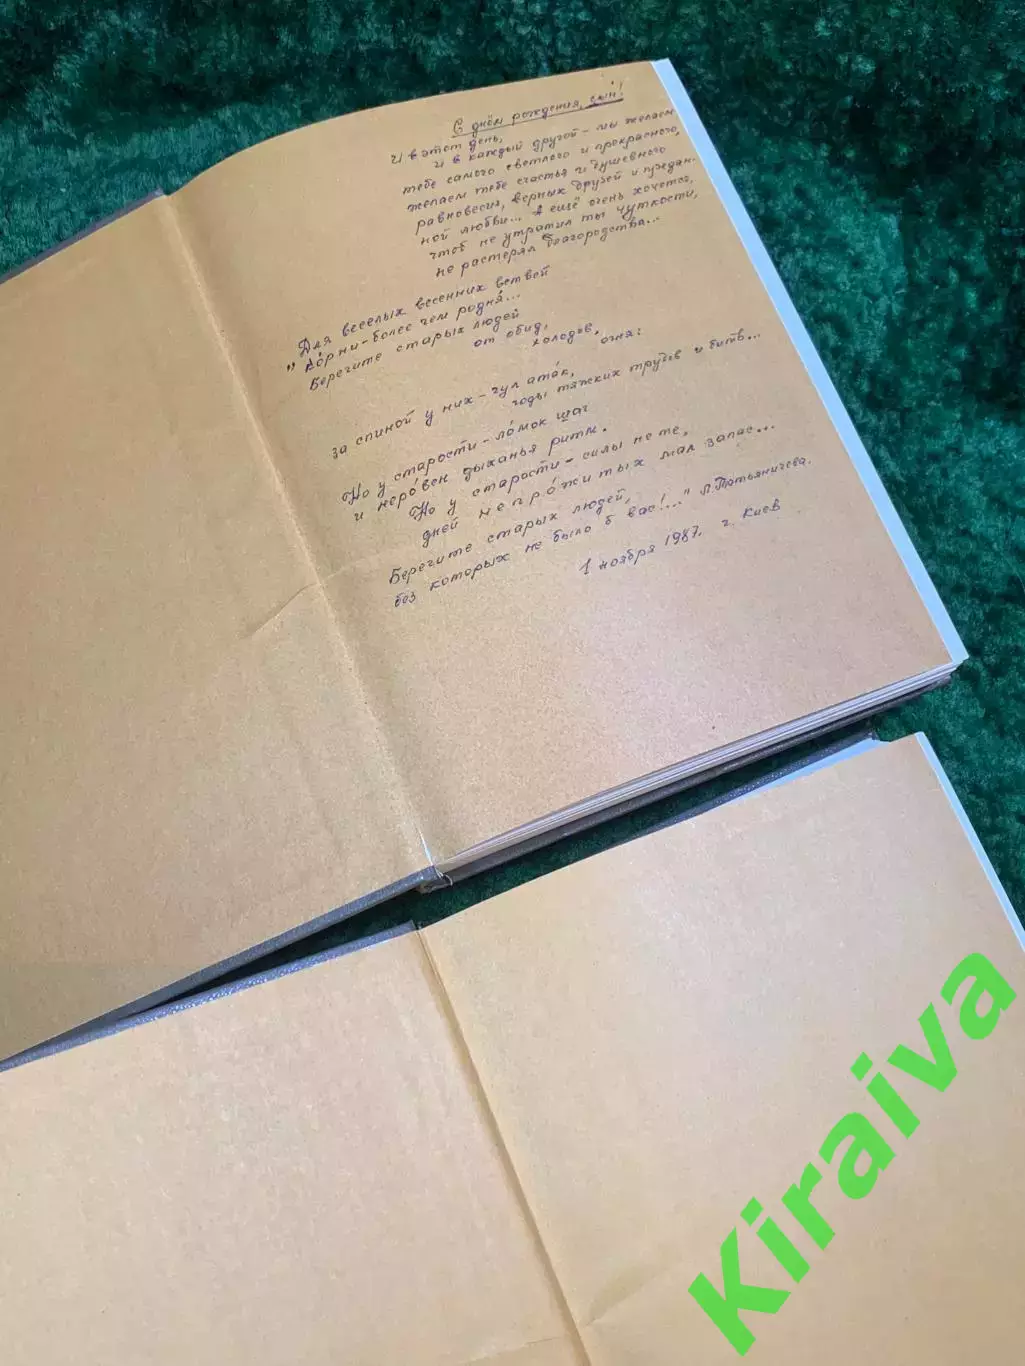 С днём рождения, сын!
И в этот день,
И в каждый другой – мы желаем
тебе самого светлого и прекрасного,
желаем тебе счастья и душевного
равновесия, верных друзей и преждан-
ной любви... А ещё очень хочется,
чтоб не утратил ты чуткости,
не растерял благородства...
Для весёлых весенних ветвей
"Ко́рни – более чем родня...
Берегите старых людей
от обид,
холодов,
огня:
за спиной у них – гул ата́к,
годы тяжких трудов и битв...
Но у старости – ло́мок шаг
и неро́вен дыханья ритм.
Но у старости – силы не те,
дней непро́житых мал запас...
Берегите старых людей,
без которых не было б вас!..." Л. Татьяничева.
1 ноября 1987. г. Киев
Kiraiva